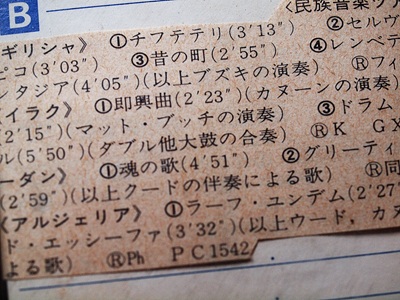 B
〈民族音楽ツア
ギリシャ》 ①チフテテリ(3′13″) ②セルヴ
ピコ(3′03″) ③昔の町(2′55″) ④レンベテ
ンタジア(4′05″)(以上ブズキの演奏) Ⓡフィ
イラク》 ①即興曲(2′23″)(カヌーンの演奏)
(2′15″)(マット・ブッチの演奏) ③ドラム
ル(5′50″)(ダブル他大鼓の合奏) ⓇK GX
ーダン》 ①魂の歌(4′51″) ②グリーティ
(2′59″)(以上クードの伴奏による歌) Ⓡ同
《アルジェリア》 ①ラーフ・ユンデム(2′27″
ド・エッシーファ(3′32″)(以上ウード，カヌ
よる歌) ⓇPh PC1542